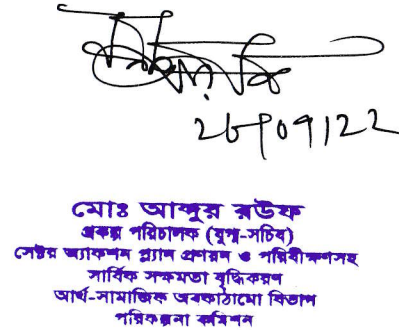 26/09/22
মোঃ আব্দুর রউফ
প্রকল্প পরিচালক (যুগ্ম-সচিব)
সেক্টর অ্যাকশন প্ল্যান প্রণয়ন ও পরিবীক্ষণসহ
সার্বিক সক্ষমতা বৃদ্ধিকরণ
আর্থ-সামাজিক অবকাঠামো বিভাগ
পরিকল্পনা কমিশন